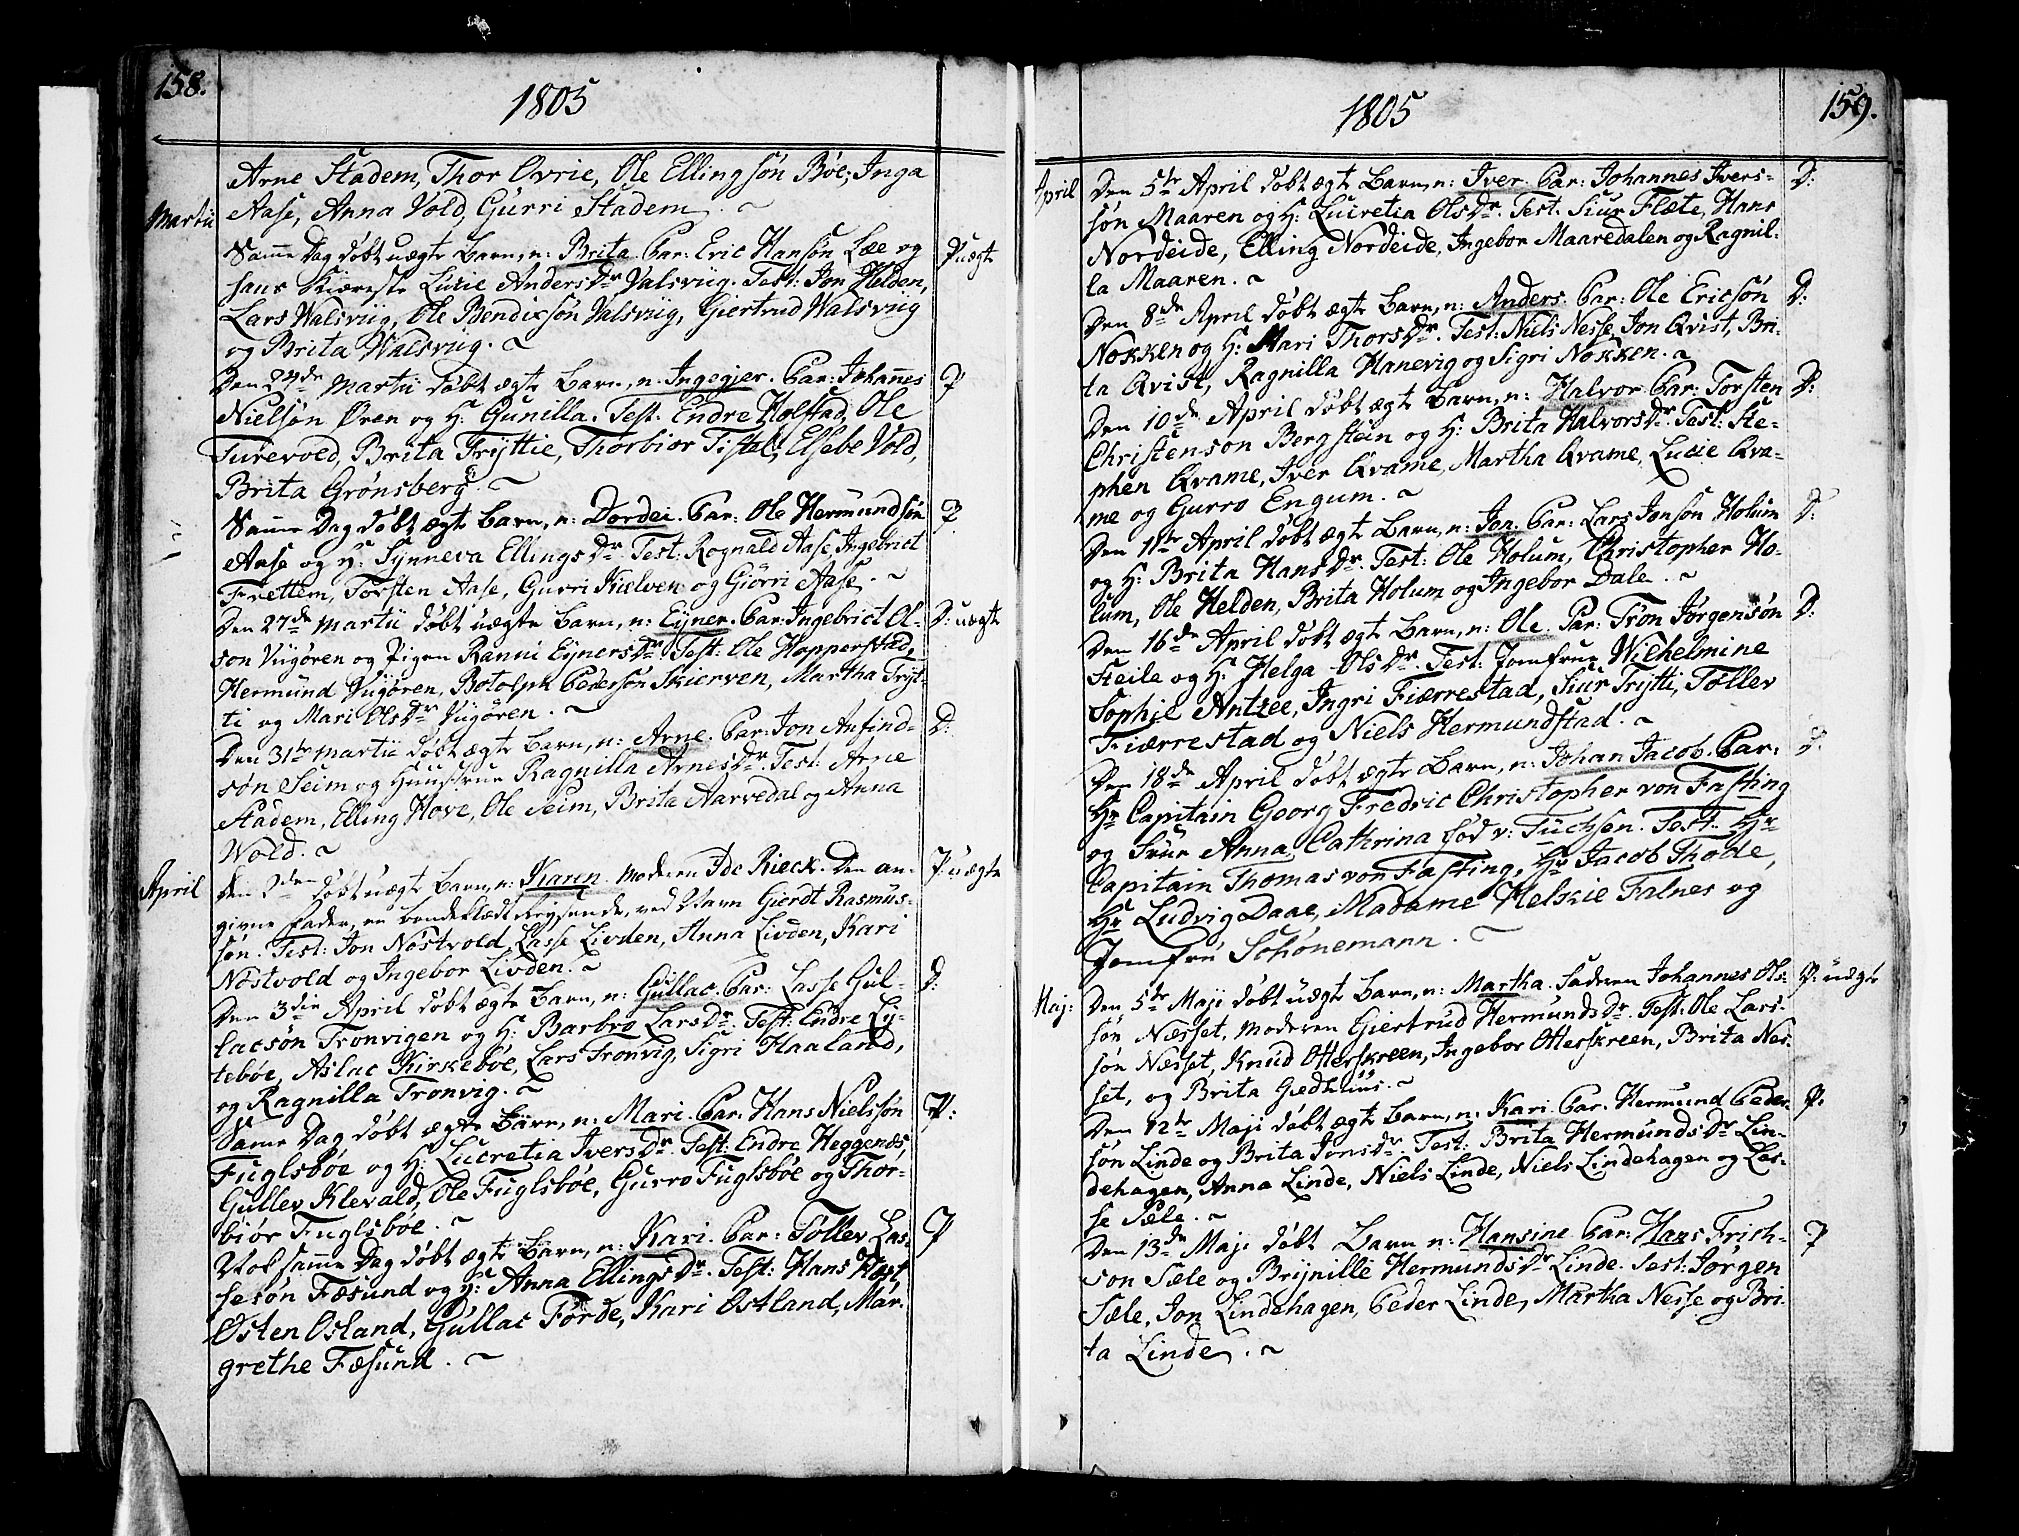 158.
1805
Arne Stadem, Thor Ovrie, Ole Ellingsøn Bøe, Inga
Martii
Aase, Anna Vold, Gurri Stadem. ~
Samme Dag døbt uægte Barn, n: Brita. Par: Eric Hansøn Læe og
P uægte
hans Kiæreste Lucie AndersDr Valsviig. Test: Jon Helden,
Lars Walsviig, Ole Bendixsøn Valsviig, Giertrud Walsviig
og Brita Walsviig. ~
Den 24de Martii døbt ægte Barn, n: Ingegjer. Par: Johannes
P
Nielsøn Øren og H: Gunilla. Test: Endre Holstad, Ole
Turevold, Brita Tryttie, Thorbiør Tistel, Elsebe Vold,
Brita Grønsberg. ~
Samme Dag døbt ægte Barn, n: Dordei. Par: Ole Hermundsøn
P
Aase og H: Synneva EllingsDr. Test: Rognald Aase, Ingebrict
Frettem, Torsten Aase, Gurri Kielven og Giørri Aase. ~
Den 27de Martii døbt uægte Barn, n: Eyner. Par: Ingebrict Ol-
D: uægte
søn Viigøren og Pigen Ranni EynersDr. Test: Ole Hopperstad,
Hermund Viigøren, Botolph Pedersøn Skierven, Martha Tryt-
ti og Mari OlsDr Viigøren. ~
Den 31te Martii døbt ægte Barn, n: Arne. Par: Jon Anfind-
D:
søn Seim og Huustrue Ragnilla ArnesDr. Test: Arne
Stadem, Elling Hove, Ole Seim, Brita Aarvedal og Anna
Wold. ~
April
den 2den døbt uægte Barn, n: Karen. Moderen Ide Rieck. Den an-
P uægte
givne Fader, en bondeklædt Reysende, ved Navn Gierdt Rasmus-
søn. Test: Jon Nøstvold, Lasse Livden, Anna Livden, Kari
Nøstvold og Ingebor Livden. ~
Den 3die April døbt ægte Barn, n: Gullac. Par: Lasse Gul-
D:
lacsøn Tronvigen og H: Barbro LarsDr. Test: Endre Ly-
tebøe, Aslac Kirkebøe, Lars Tronvig, Sigri Haaland,
og Ragnilla Tronvig. ~
Samme Dag døbt ægte Barn, n: Mari. Par: Hans Nielssøn
P:
Fuglsbøe og H: Lucretia IversDr. Test: Endre Heggenæs,
Gullev Klevald, Ole Fuglsbøe, Gurro Fuglsbøe og Thor-
biør Fuglsbøe. ~
Nok samme Dag døbt ægte Barn, n: Kari. Par: Tøllev Las-
P
sesøn Fæsund og H: Anna EllingsDr. Test: Hans Høst,
Østen Osland, Gullac Førde, Kari Ostland, Mar-
grethe Fæsund. ~
1805
159.
April
Den 5te April døbt ægte Barn, n: Iver. Par: Johannes Ivers-
D:
søn Maaren og H: Lucretia OlsDr. Test: Siur Flæte, Hans
Nordeide, Elling Nordeide, Ingebor Maaredalen og Ragnil-
la Maaren. ~
Den 8de April døbt ægte Barn, n: Anders. Par: Ole Ericsøn
D:
Nokken og H: Mari ThorsDr. Test: Niels Nesse, Jon Qvist, Bri-
ta Qvist, Ragnilla Hanevig og Sigri Nokken. ~
Den 10de April døbt ægte Barn, n: Halvor. Par: Torsten
D:
Christensøn Bergstein og H: Brita HalvorsDr. Test: Ste-
phen Qvame, Iver Qvame, Martha Qvame, Lucie Qva-
me og Gurro Engum. ~
Den 11te April døbt ægte Barn, n: Jon. Par: Lars Jonsøn Holum
D:
og H: Brita HansDr. Test: Ole Holum, Christopher Ho-
lum, Ole Helden, Brita Holum og Ingebor Dale. ~
Den 16de April døbt ægte Barn, n: Ole. Par: Trøn Jørgensøn
D:
Steile og H: Helga OlsDr. Test: Jomfrue Wilhelmine
Sophie Antzee, Ingri Fiærrestad, Siur Trytti, Tøllev
Fiærrestad og Niels Hermundstad. ~
Den 18de April døbt ægte Barn, n: Johan Jacob. Par:
D.
Hr Capitain Georg Fredric Christopher von Fasting
og Frue Anna Cathrina fød v: Füchsen. Test: Hr
Capitain Thomas von Fasting, Hr Jacob Thode,
Hr Ludvig Daae, Madame Helsie Falnes og
Jomfrü Schønemann. ~
Maj:
Den 5te Maji døbt uægte Barn, n: Martha. Faderen Johannes Ols-
P: uægte
søn Næsset, Moderen Giertrud HermundsDr. Test: Ole Lars-
søn Nesset, Knud Otterskreen, Ingebor Otterskreen, Brita Nes-
set, og Brita Gædhuus. ~
Den 12te Maji døbt ægte Barn, n: Kari. Par: Hermund Peder-
P.
søn Linde og Brita JonsDr. Test: Brita HermundsDr Lin-
dehagen, Anna Linde, Niels Linde, Niels Lindehagen og Las-
se Sæle. ~
Den 13de Maji døbt Barn n: Hansine. Par: Hans Frich-
P
son Sæle og Brynille HermundsDr Linde. Test: Jørgen
Sæle, Jon Lindehagen, Peder Linde, Martha Nesse og Bri-
ta Linde. ~